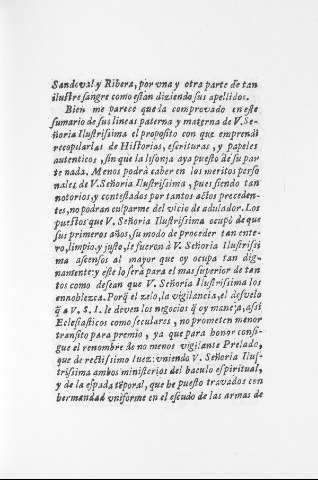 Sandoval y Ribera, por vna y otra parte de tan
ilustre sangre como estàn diziendo sus apellidos.
Bien me parece que la comprovado en este
sumario de sus lineas paterna y materna de V. Se-
ñoria Ilustrissima el proposito con que emprendi
recopilarlas de Historias, escrituras, y papeles
autenticos, sin que la lisonja aya puesto de su par
te nada. Menos podrà caber en los meritos perso
nales de V. Señoria Ilustrissima, pues siendo tan
notorios, y contestados por tantos actos preceden-
tes, no podran culparme del vicio de adulador. Los
puestos que V. Señoria Ilustrissima ocupò de que
sus primeros años, su modo de proceder tan ente-
ro, limpio, y justo, le fueron à V. Señoria Ilustrissi
ma ascensos al mayor que oy ocupa tan dig-
namente: y este lo serà para el mas superior de tan
tos como desean que V. Señoria Ilustrissima los
ennoblezca. Porq̃ el zelo, la vigilancia, el desvelo
q̃ a V. S. I. le deven los negocios q̃ oy maneja, assi
Eclesiasticos como seculares, no prometen menor
transito para premio, ya que para honor consi-
gue el renombre de no menos vigilante Prelado,
que de rectissimo Iuez: vniendo V. Señoria Ilus-
trissima ambos ministerios del baculo espiritual,
y de la espada tẽporal, que he puesto travados con
hermandad vniforme en el escudo de las armas de